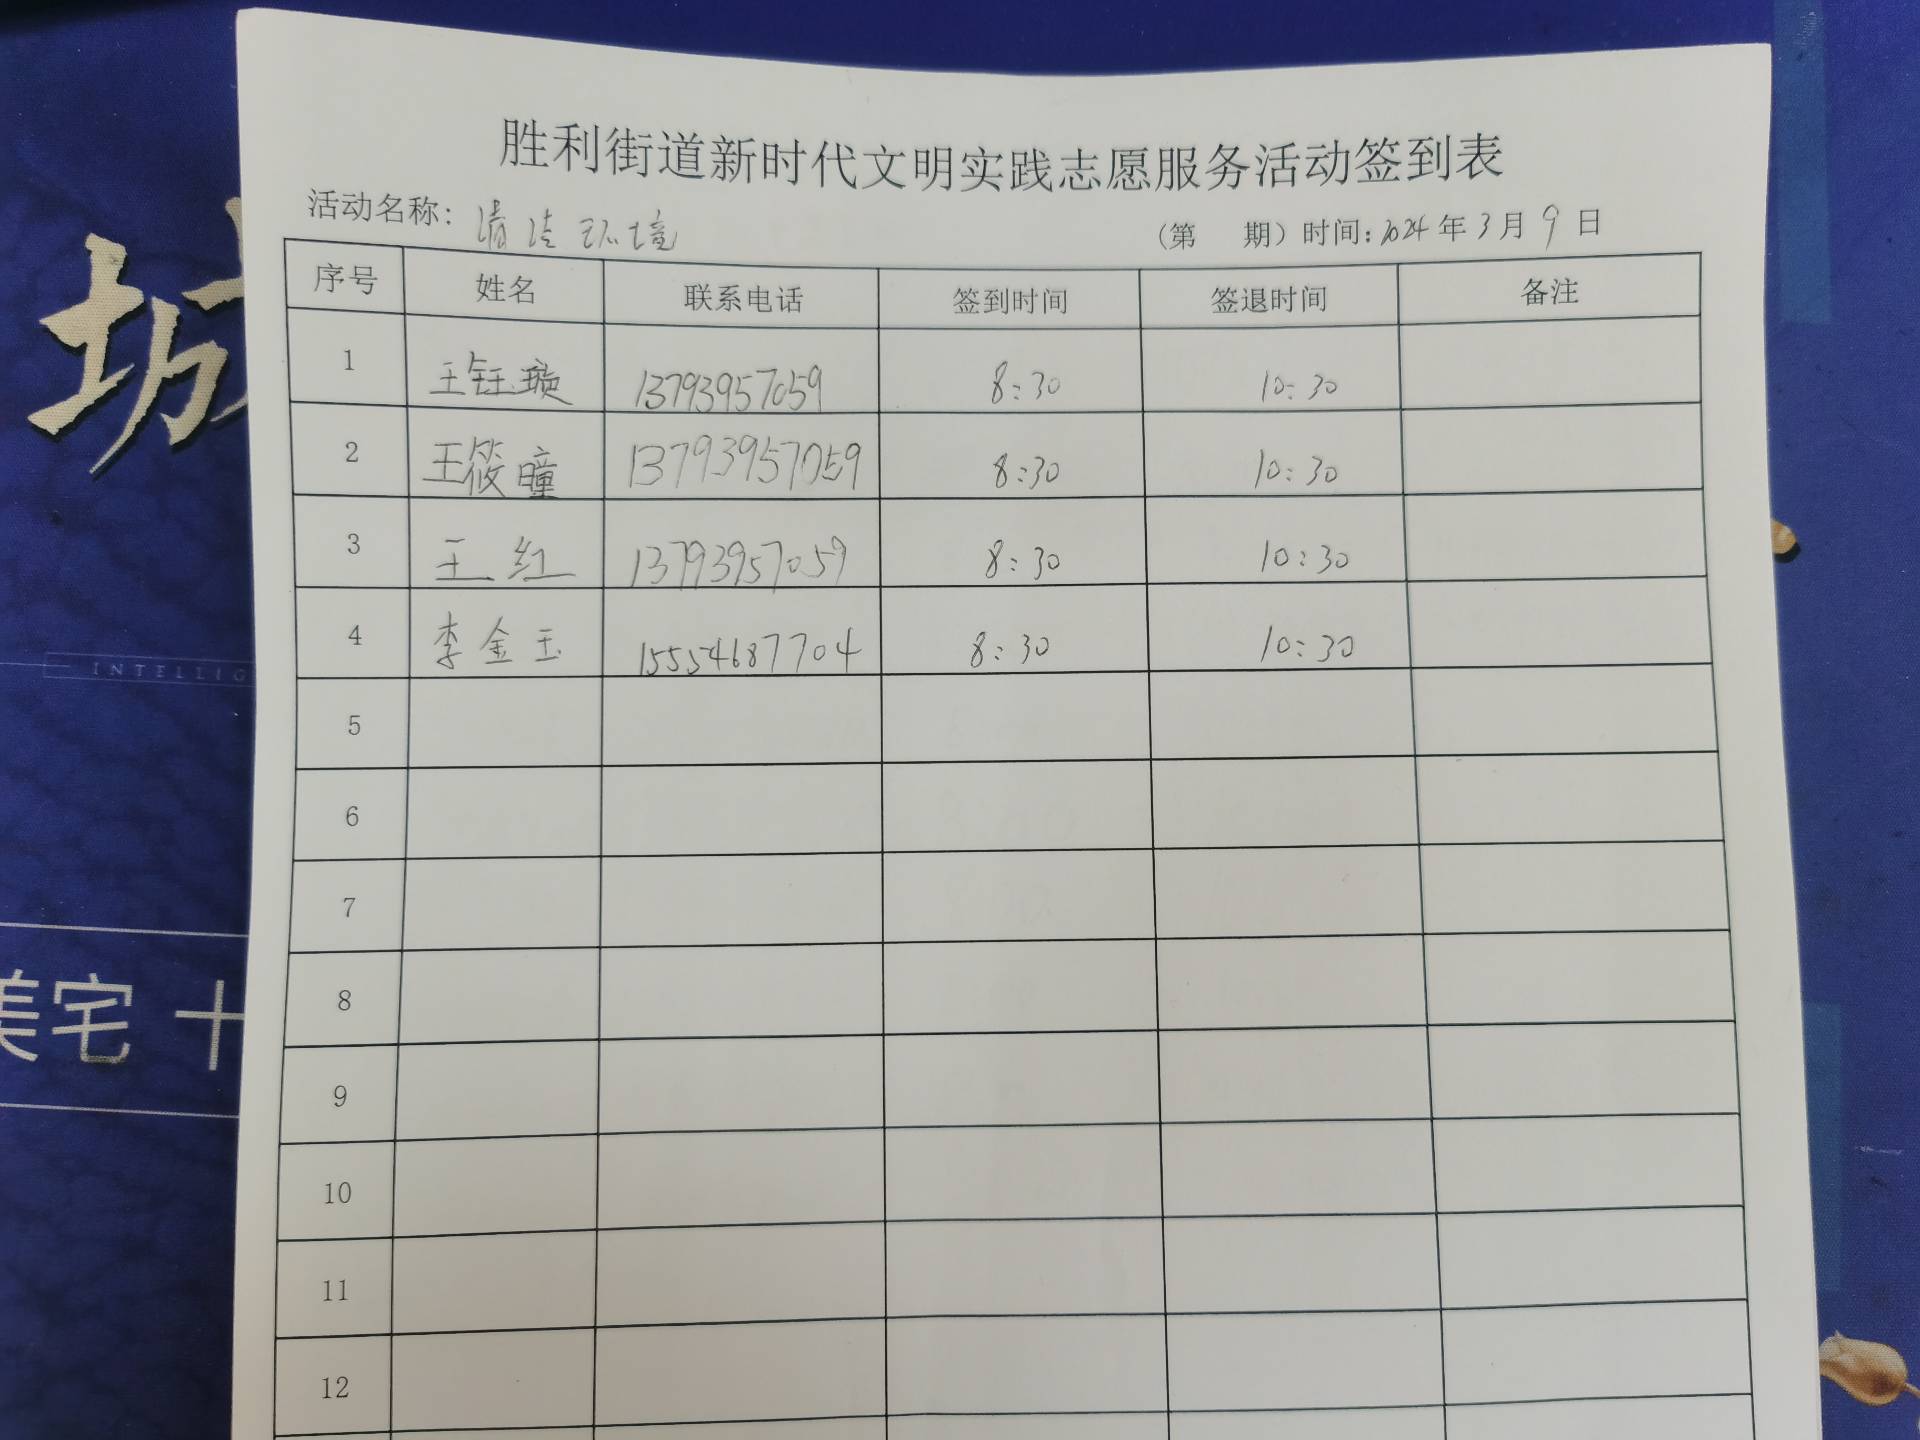 胜利街道新时代文明实践志愿服务活动签到表
活动名称：清洁环境
（第 期）时间：2024年3月9日
序号 姓名 联系电话 签到时间 签退时间 备注
1 王钰璇 13793957059 8:30 10:30
2 王筱曈 13793957059 8:30 10:30
3 王红 13793957059 8:30 10:30
4 李金玉 15554687704 8:30 10:30
5
6
7
8
9
10
11
12
INTELLIG
美宅 十